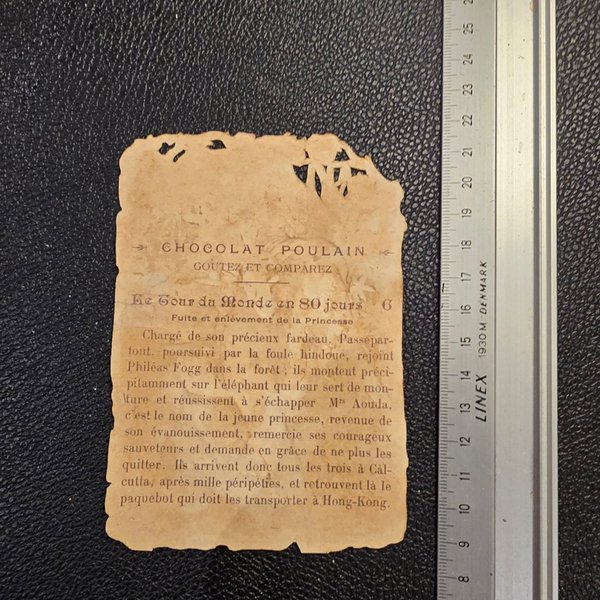 CHOCOLAT POULAIN
GOUTEZ ET COMPAREZ
Le Tour du Monde en 80 jours 6
Fuite et enlèvement de la Princesse
Chargé de son précieux fardeau, Passepar-
tout, poursuivi par la foule hindoue, rejoint
Philéas Fogg dans la forêt ; ils montent préci-
pitamment sur l'éléphant qui leur sert de mon-
ture et réussissent à s'échapper Mrs Aouda,
c'est le nom de la jeune princesse, revenue de
son évanouissement, remercie ses courageux
sauveteurs et demande en grâce de ne plus les
quitter. Ils arrivent donc tous les trois à Cal-
cutta, après mille péripéties, et retrouvent là le
paquebot qui doit les transporter à Hong-Kong.
25
24
23
22
21
20
19
18
17
16
15
14
13
12
11
10
9
8
LINEX 1930M · DENMARK